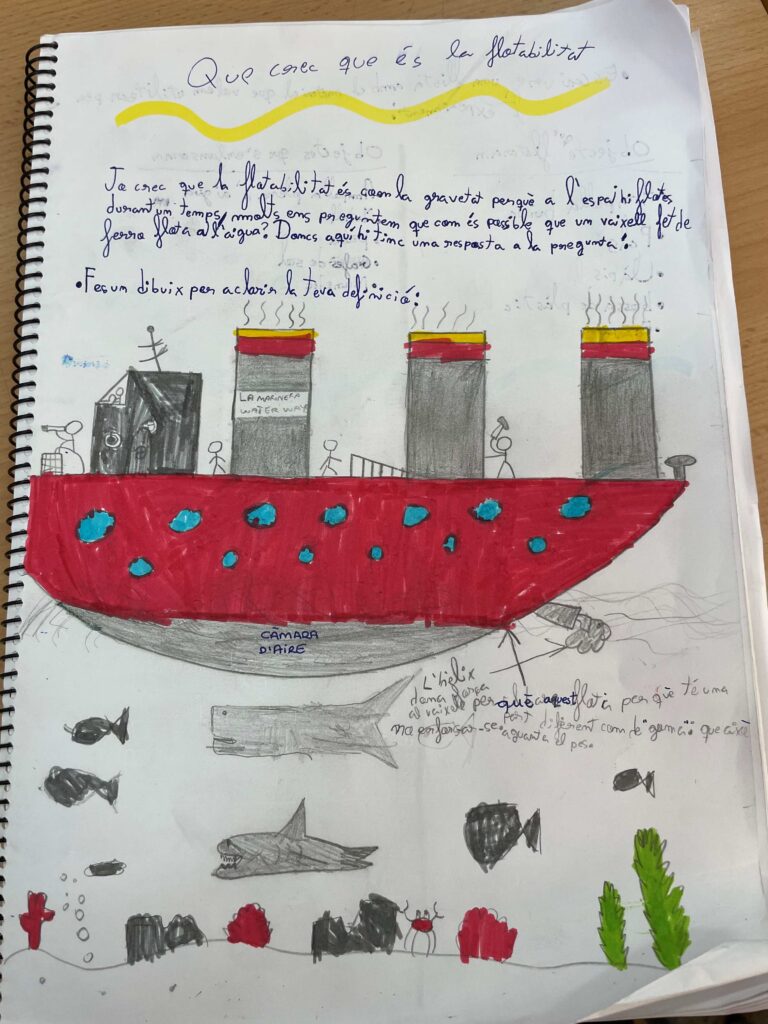 Que crec que és la flotabilitat
Jo crec que la flotabilitat és com la gravetat perquè a l'espai hi flotes
durant un temps, molts ens preguntem que com és possible que un vaixell fet de
ferro flota a l'aigua? Doncs aquí hi tinc una resposta a la pregunta:
•Fes un dibuix per aclarir la teva definició:
LA MARINERA
WATER WAY
CÀMARA
D'AIRE
L'hèlix
dona força
al vaixell per
no enfonsar-se
què aquest flota per què té una
part diferent com de goma i que així
aguanta el pes.